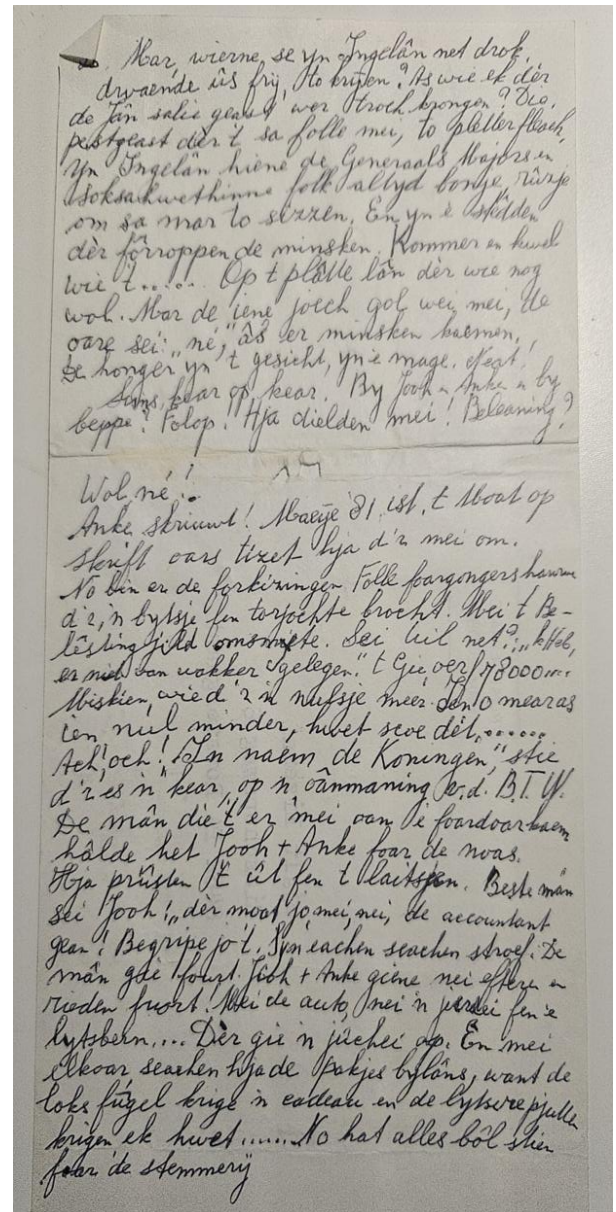 so. Mar, wierne, se yn Ingelân net drok,
drwaende ús frij, to krijen? As wie ek dêr
de Jân salie geast wer troch krongen? Die,
pestgeast dêr't sa folle mei, to pletter fleach,
Yn Ingelân hiene de Generaals Majors en
soksahwethinne folk altyd bonje, rûzje
om sa mar to sizzen. En yn 'e stêdden
dêr forroppen de minsken. Kommer en kwel
wie 't..... Op t plâtte lân dêr wie nog
wol. Mar de iene joech gol wei, mei, de
oare sei: "né," âs er minsken kaemen,
de honger yn 't gesicht, yn 'e mage. Neat!
Sims, kear op, kear. By Jooh en Anke en by
beppe? Folop! Hja dielden mei! Beleaning?
Wol, né!
Anke skriuwt! Maeije '81, ist, t Moat op
skrift oars tizet hja d'r mei om.
No bin er de forkizingen Folle foargongers hawwe
d'r, 'n bytsje fen torjochte brocht. Mei t Be-
lêstingjild omsmite. Sei Uil net?: "k Heb,
er niet van wakker gelegen." t Gie oer f 78000....
Miskien, wie d'r 'n nulsje meer. Ien 0 mear as
ien nul minder, hwet scoe dêt,......
Ach, och! "In naem, de Koningen," stie
d'r es 'n kear, op 'n oânmaning v.d. B.T.W.
De mân die 't er mei oan 'e foardoar kaem
hâlde het Jooh + Anke foar de noas.
Hja prûsten 't út fen t laitsjen. Beste mân
sei Jooh!, "dêr moat jo mei, nei, de accountant
gean! Begripe jo 't. Syn eachen seachen stroef. De
mân gie fourt. Jooh + Anke giene nei efteren en
rieden fuort. Mei de auto, nei 'n jierdei fen 'e
lytsbern.... Dêr gie 'n júchei op. En mei
elkoar seachen hja de pakjes bylâns, want de
loksfûgel krige 'n cadeau en de lytsere pjutten
krigen ek hwet...... No hat alles bôl stien
foar de stemmerij